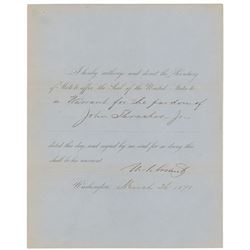 I hereby authorize and direct the Secretary
of State to affix the Seal of the United States to
a Warrant for the pardon of
John Thrasher, Jr.
dated this day, and signed by me, and for so doing this
shall be his warrant.
U. S. Grant
Washington, March 26, 1871